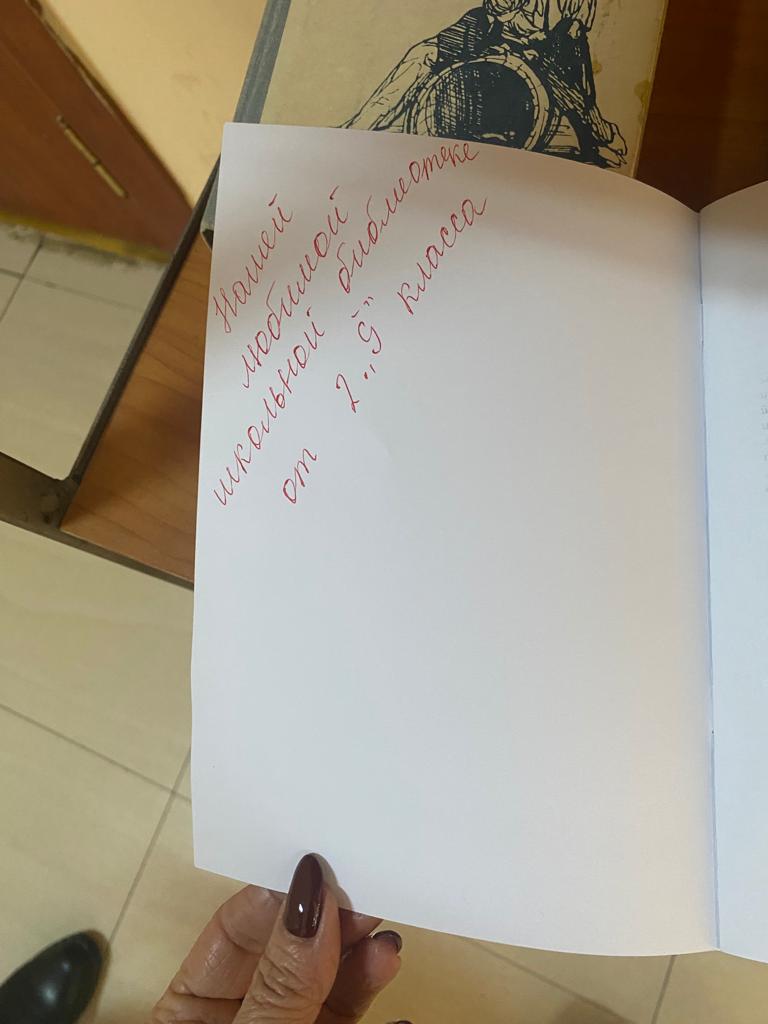 Нашей
любимой
школьной библиотеке
от 2 „G" класса